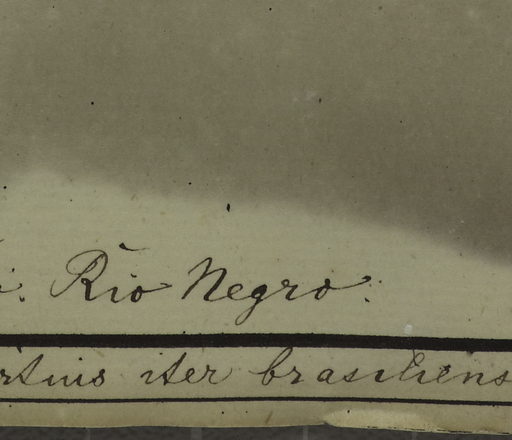 Rio Negro.
iter brasiliens